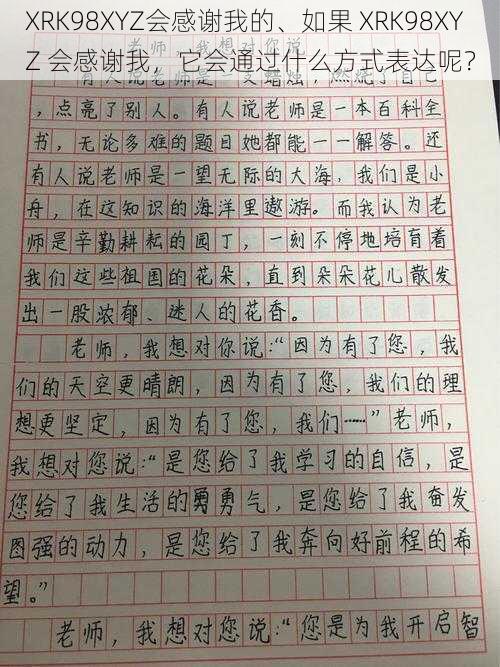 XRK98XYZ会感谢我的、如果 XRK98XY
Z 会感谢我，它会通过什么方式表达呢？
老师，我想对你说
有人说老师是一支蜡烛，燃烧了自己
，点亮了别人。有人说老师是一本百科全
书，无论多难的题目她都能一一解答。还
有人说老师是一望无际的大海，我们是小
舟，在这知识的海洋里遨游。而我认为老
师是辛勤耕耘的园丁，一刻不停地培育着
我们这些祖国的花朵，直到朵朵花儿散发
出一股浓郁、迷人的花香。
老师，我想对你说：“因为有了您，我
们的天空更晴朗，因为有了您，我们的理
想更坚定，因为有了您，我们……”老师，
我想对您说：“是您给了我学习的自信，是
您给了我生活的勇勇气，是您给了我奋发
图强的动力，是您给了我奔向好前程的希
望。”
老师，我想对您说：“您是为我开启智